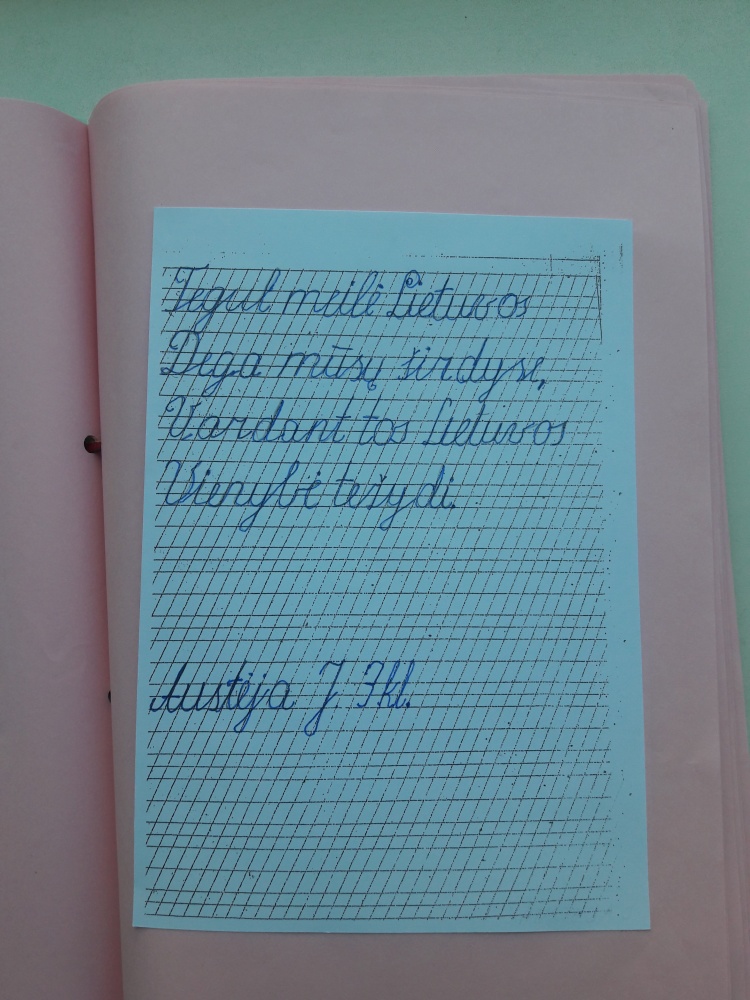 Tegul meilė Lietuvos
Dega mūsų širdyse,
Vardant tos Lietuvos
Vienybė težydi.
Austėja J 3kl.